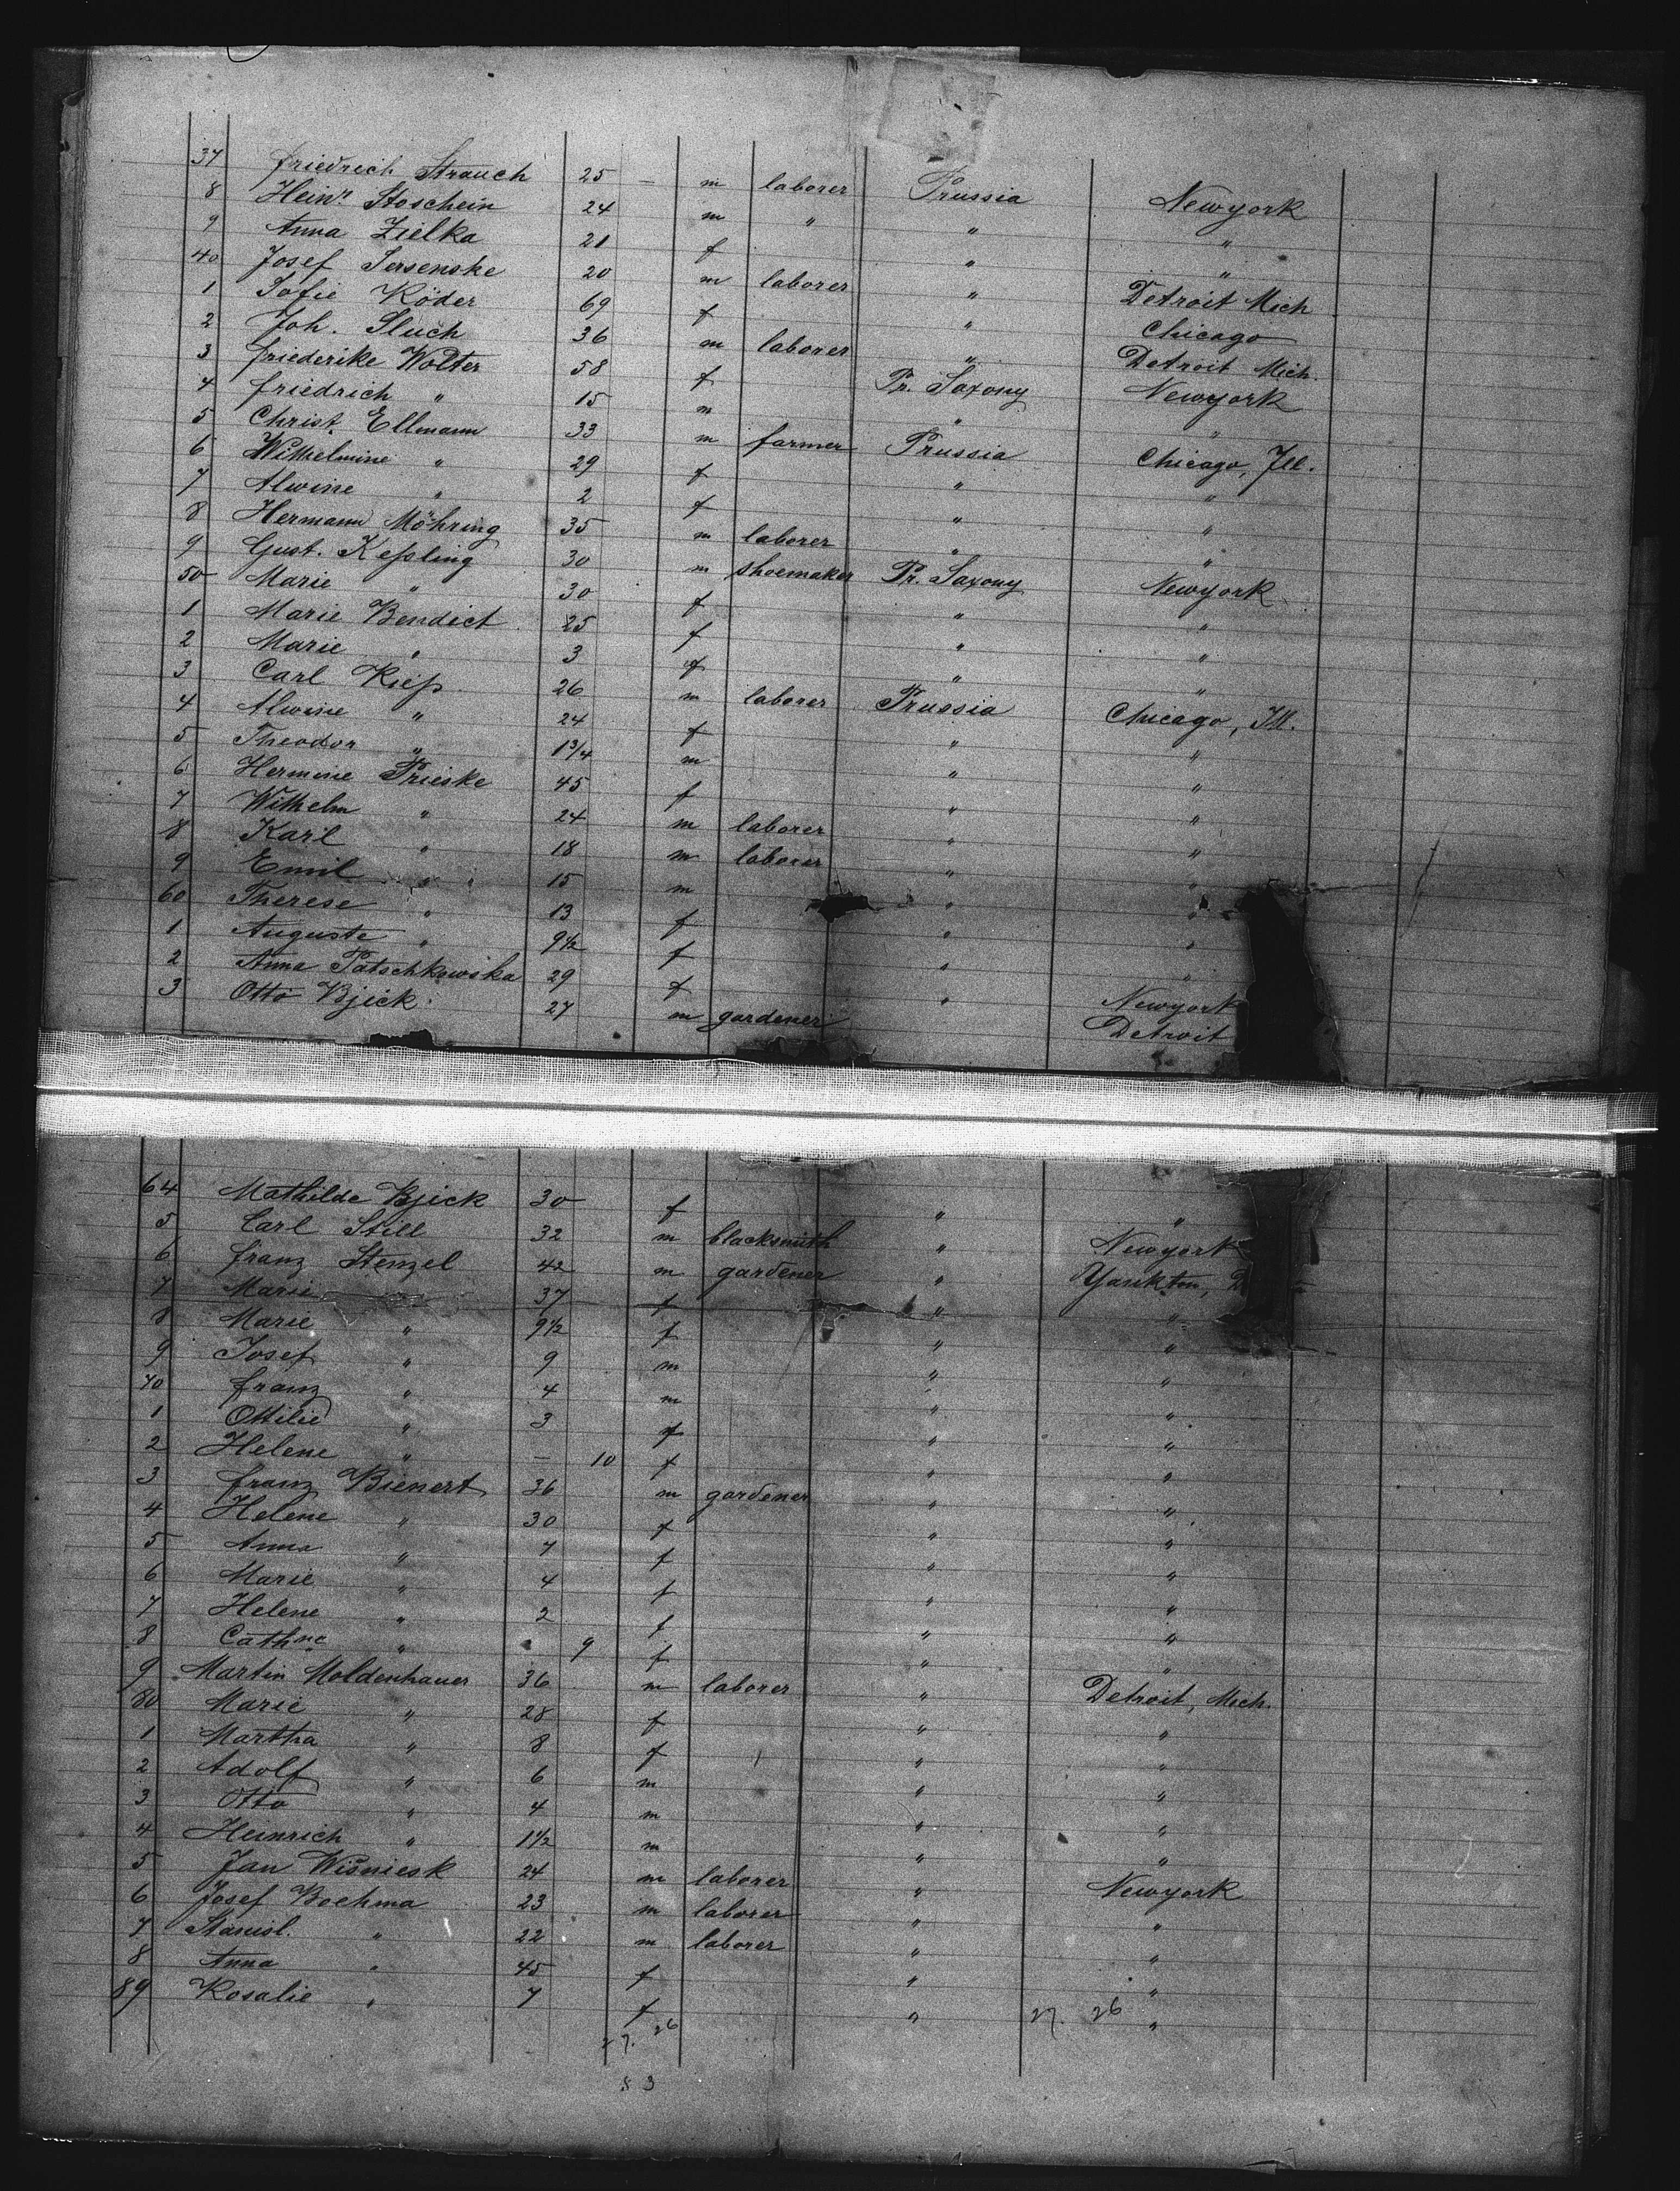 37 Friedrich Strauch 25 — m laborer Prussia Newyork
8 Heinr. Stoschein 24 m " " "
9 Anna Zielka 21 f " "
40 Josef Sersenske 20 m laborer " Detroit Mich
1 Sofie Köder 69 f " Chicago
2 Joh. Sluch 36 m laborer " Detroit Mich.
3 Friederike Wolter 58 f Pr. Saxony Newyork
4 Friedrich " 15 m " "
5 Christ. Ellmann 33 m farmer Prussia Chicago, Ill.
6 Wilhelmine " 29 f " "
7 Alwine " 2 f " "
8 Hermann Möhring 35 m laborer " "
9 Gust. Keßling 30 m shoemaker Pr. Saxony Newyork
50 Marie " 30 f " "
1 Marie Bendict 25 f " "
2 Marie " 3 f " "
3 Carl Rieß 26 m laborer Prussia Chicago, Ill.
4 Alwine " 24 f " "
5 Theodor " 1 3/4 m " "
6 Hermine Prieske 45 f " "
7 Wilhelm " 24 m laborer " "
8 Karl " 18 m laborer " "
9 Emil " 15 m " "
60 Therese " 13 f " "
1 Auguste " 9 1/2 f " "
2 Anna Patschkowska 29 f " Newyork
3 Otto Bjick 27 m gardener Detroit
64 Mathilde Bjick 30 f " "
5 Carl Still 32 m blacksmith " Newyork
6 Franz Stenzel 42 m gardener " Yankton, D
7 Marie 37 f " "
8 Marie " 9 1/2 f " "
9 Josef " 9 m " "
70 Franz " 4 m " "
1 Ottilie " 3 f " "
2 Helene " — 10 f " "
3 Franz Bienert 36 m gardener " "
4 Helene " 30 f " "
5 Anna " 7 f " "
6 Marie " 4 f " "
7 Helene " 2 f " "
8 Cathne " 9 f " "
9 Martin Moldenhauer 36 m laborer " Detroit, Mich.
80 Marie " 28 f " "
1 Martha " 8 f " "
2 Adolf " 6 m " "
3 Otto " 4 m " "
4 Heinrich " 1 1/2 m " "
5 Jan Wisniesk 24 m laborer " Newyork
6 Josef Bochma 23 m laborer " "
7 Stanisl. " 22 m laborer " "
8 Anna " 45 f " "
89 Rosalie " 7 f " "
27. 26 27. 26
53